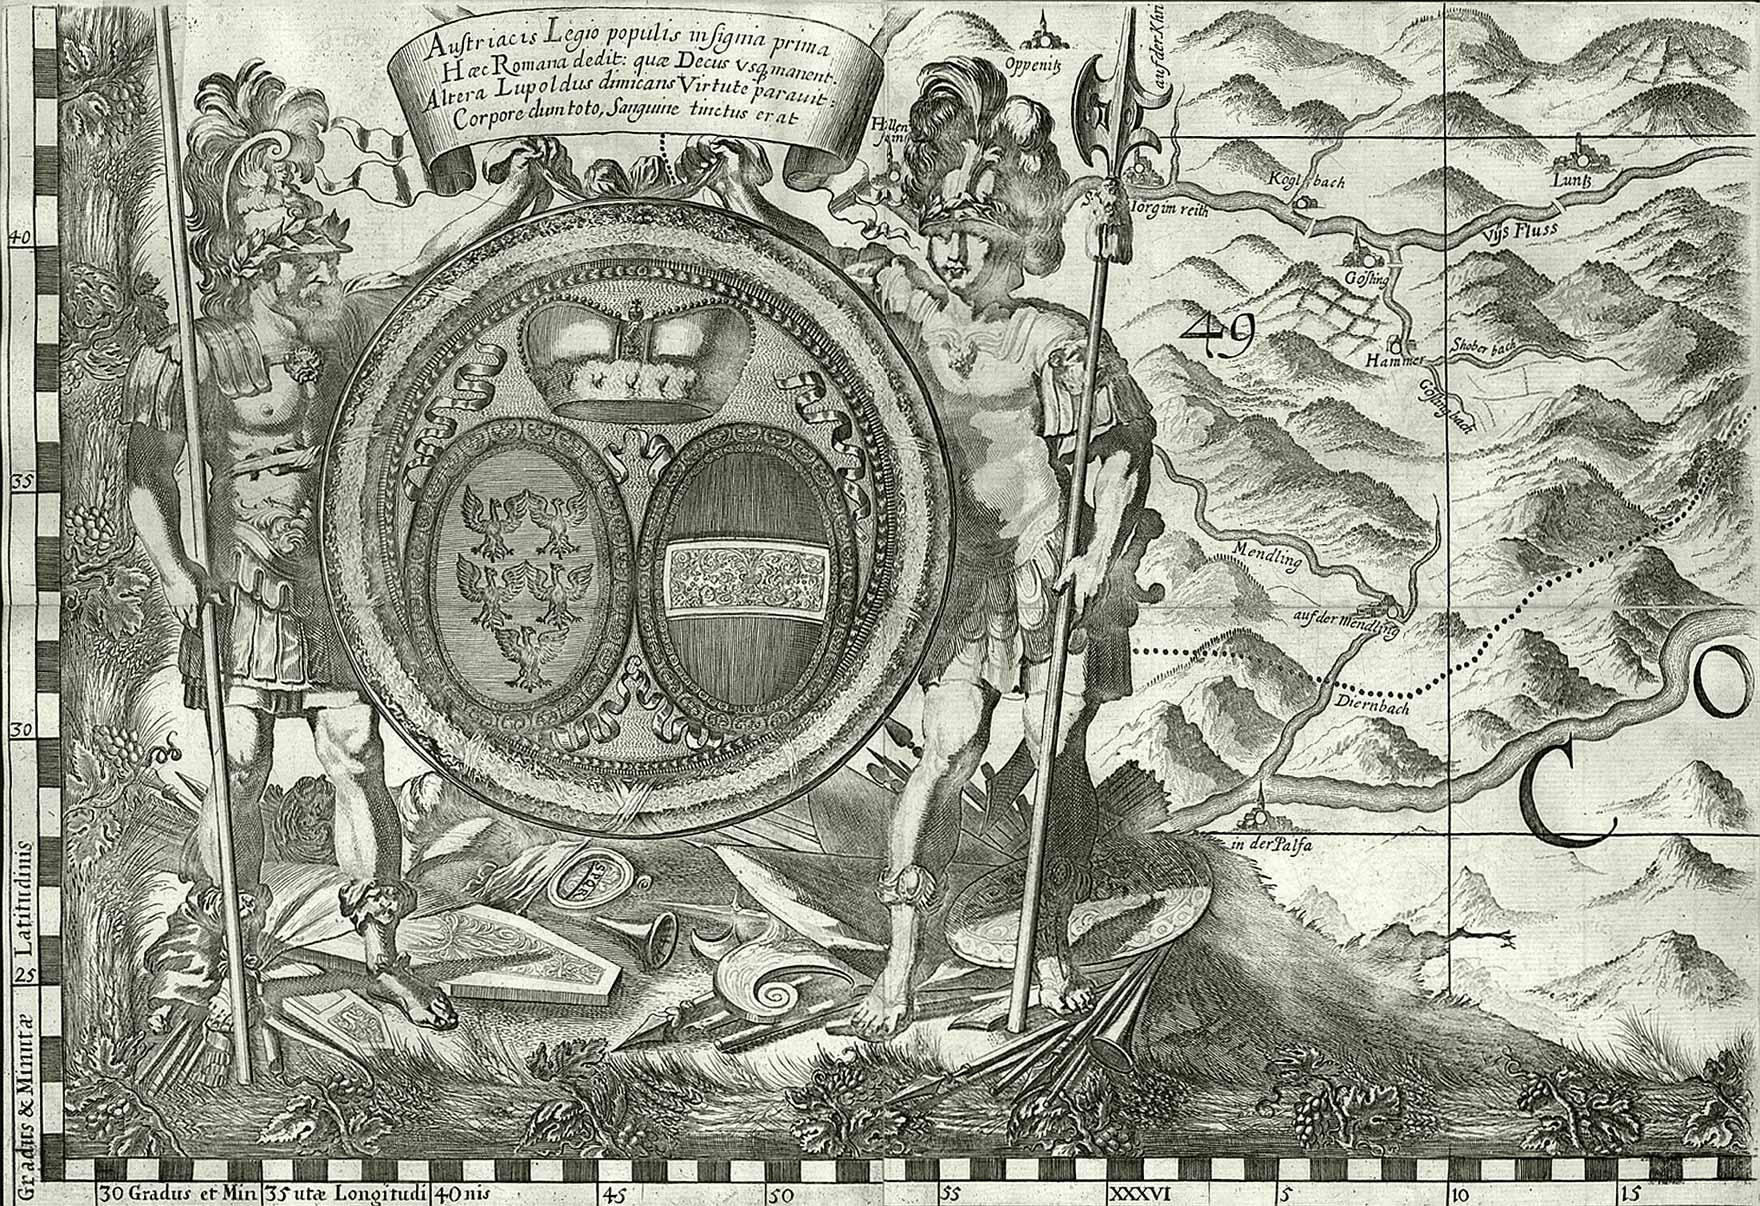 Austriacis Legio populis insignia prima
Hæc Romana dedit: quæ Decus usq manent.
Altera Lupoldus dimicans Virtute parauit:
Corpore dum toto, Sanguine tinctus erat
Oppenitz
auf der Khri
Höllen
stain
Kogl bach
Luntz
S.
Iorg im reith
YƷs Fluss
Gösting
49
Hammer
Shober bach
Göstingbach
Mendling
auf der Mendling
O
Diernbach
C
in der Palfa
SPQR
40
35
30
25
Gradus & Minutæ Latitudinis
30 Gradus et Min 35 utæ Longitudi 40 nis 45 50 55 XXXVI 5 10 15